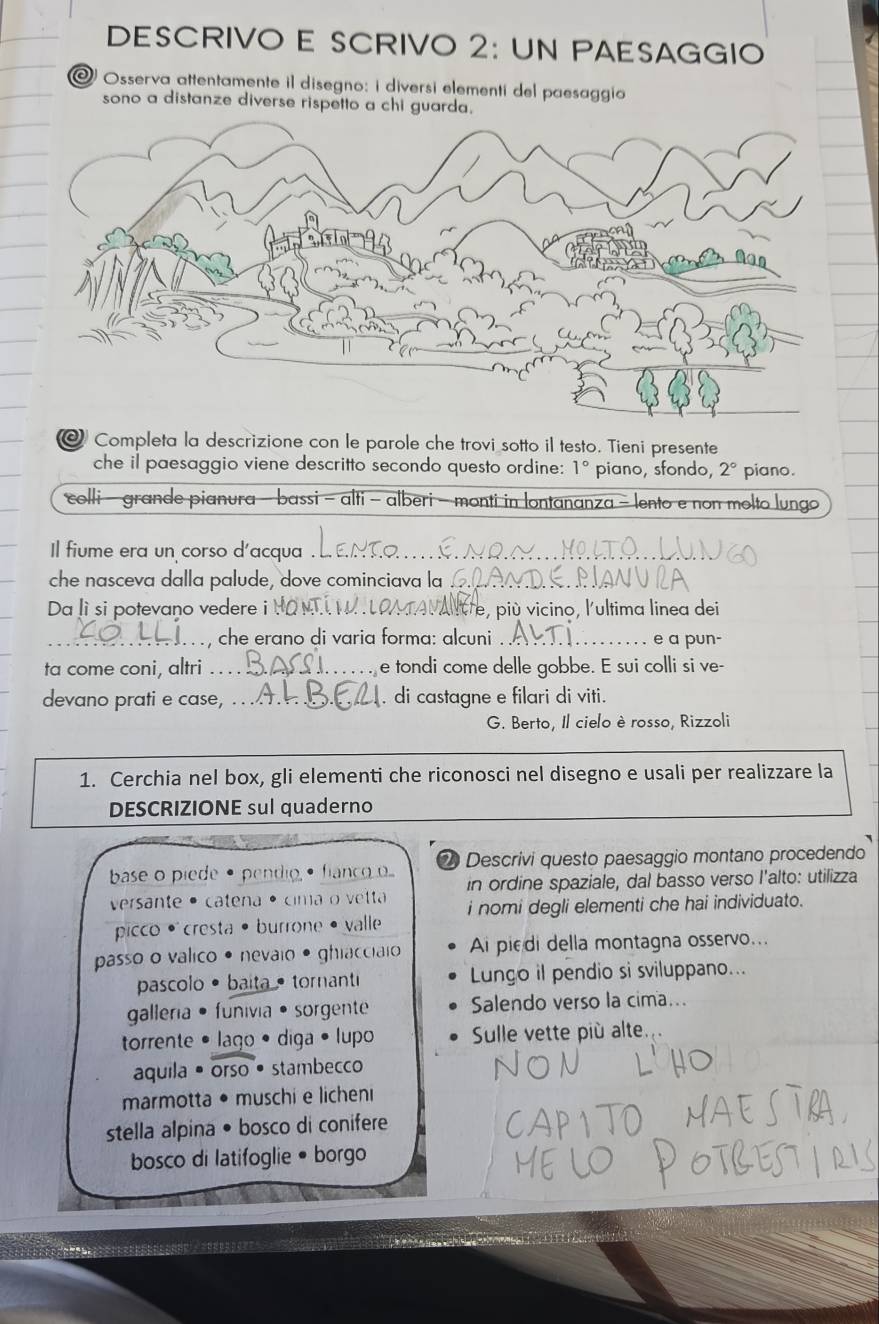 DESCRIVO E SCRIVO 2: UN PAESAGGIO
Osserva attentamente il disegno: i diversi elementi del paesaggio
sono a distanze diverse rispetto a chi guarda.
Completa la descrizione con le parole che trovi sotto il testo. Tieni presente
che il paesaggio viene descritto secondo questo ordine: 1° piano, sfondo, 2° piano.
colli - grande pianura - bassi - alti - alberi - monti in lontananza - lento e non molto lungo
Il fiume era un corso d'acqua LENTO E NON MOLTO LUNGO
che nasceva dalla palude, dove cominciava la GRANDE PIANURA
Da lì si potevano vedere i MONTI IN e, più vicino, l'ultima linea dei
COLLI, che erano di varia forma: alcuni ALTI e a pun-
ta come coni, altri BASSI e tondi come delle gobbe. E sui colli si ve-
devano prati e case, ALBERI. di castagne e filari di viti.
G. Berto, Il cielo è rosso, Rizzoli
1. Cerchia nel box, gli elementi che riconosci nel disegno e usali per realizzare la
DESCRIZIONE sul quaderno
base o piede • pendio • fianco o
versante • catena • cima o vetta
picco • cresta • burrone • valle
passo o valico • nevaio • ghiacciaio
pascolo • baita • tornanti
galleria • funivia • sorgente
torrente • lago • diga • lupo
aquila • orso • stambecco
marmotta • muschi e licheni
stella alpina • bosco di conifere
bosco di latifoglie • borgo
2 Descrivi questo paesaggio montano procedendo
in ordine spaziale, dal basso verso l'alto: utilizza
i nomi degli elementi che hai individuato.
• Ai piedi della montagna osservo...
• Lungo il pendio si sviluppano...
• Salendo verso la cima...
• Sulle vette più alte...
NON L'HO
CAPITO MAESTRA,
ME LO POTRESTI RIS